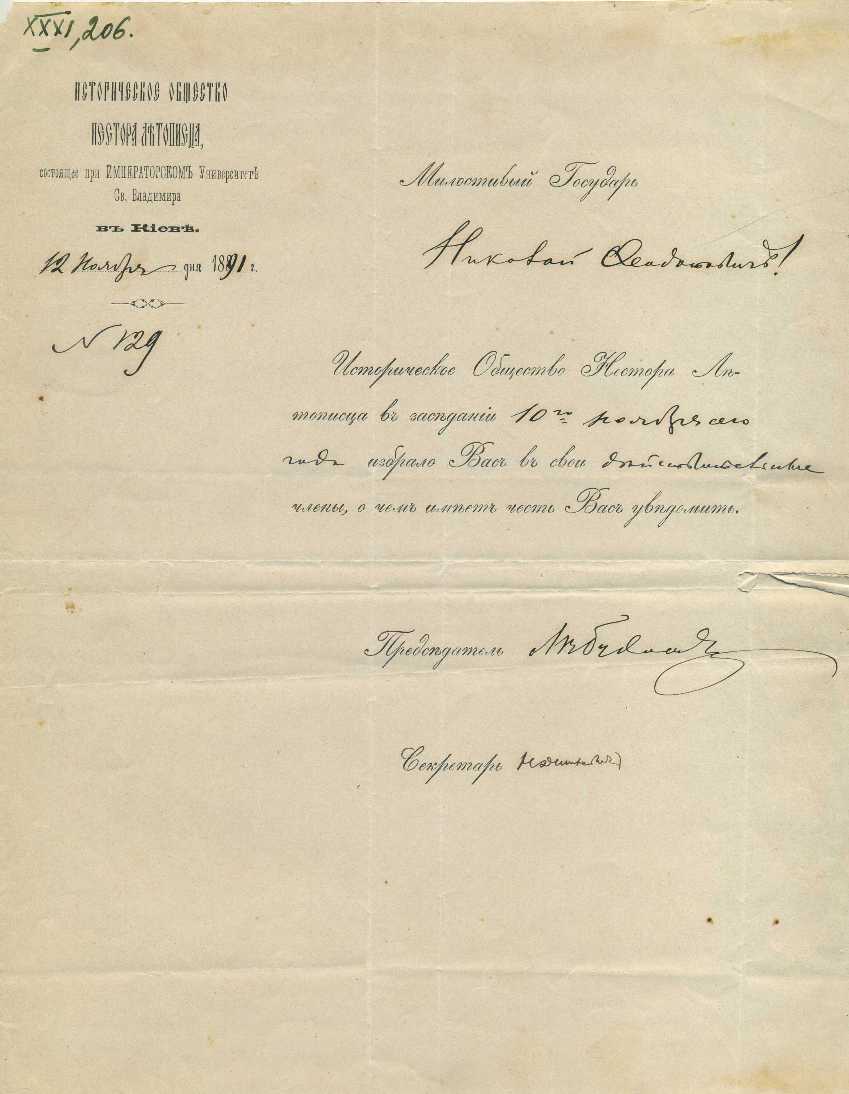 XXXI, 206.
ИСТОРИЧЕСКОЕ ОБЩЕСТВО
НЕСТОРА ЛѢТОПИСЦА,
состоящее при ИМПЕРАТОРСКОМЪ Университетѣ
Св. Владимира
въ Кіевѣ.
12 Ноября дня 1891 г.
N 129
Милостивый Государь
Николай !
Историческое Общество Нестора Лѣ-
тописца въ засѣданіи 10го ноября сего
года избрало Васъ въ свои дѣйствительные
члены, о чемъ имѣетъ честь Васъ увѣдомить.
Предсѣдатель
Секретарь